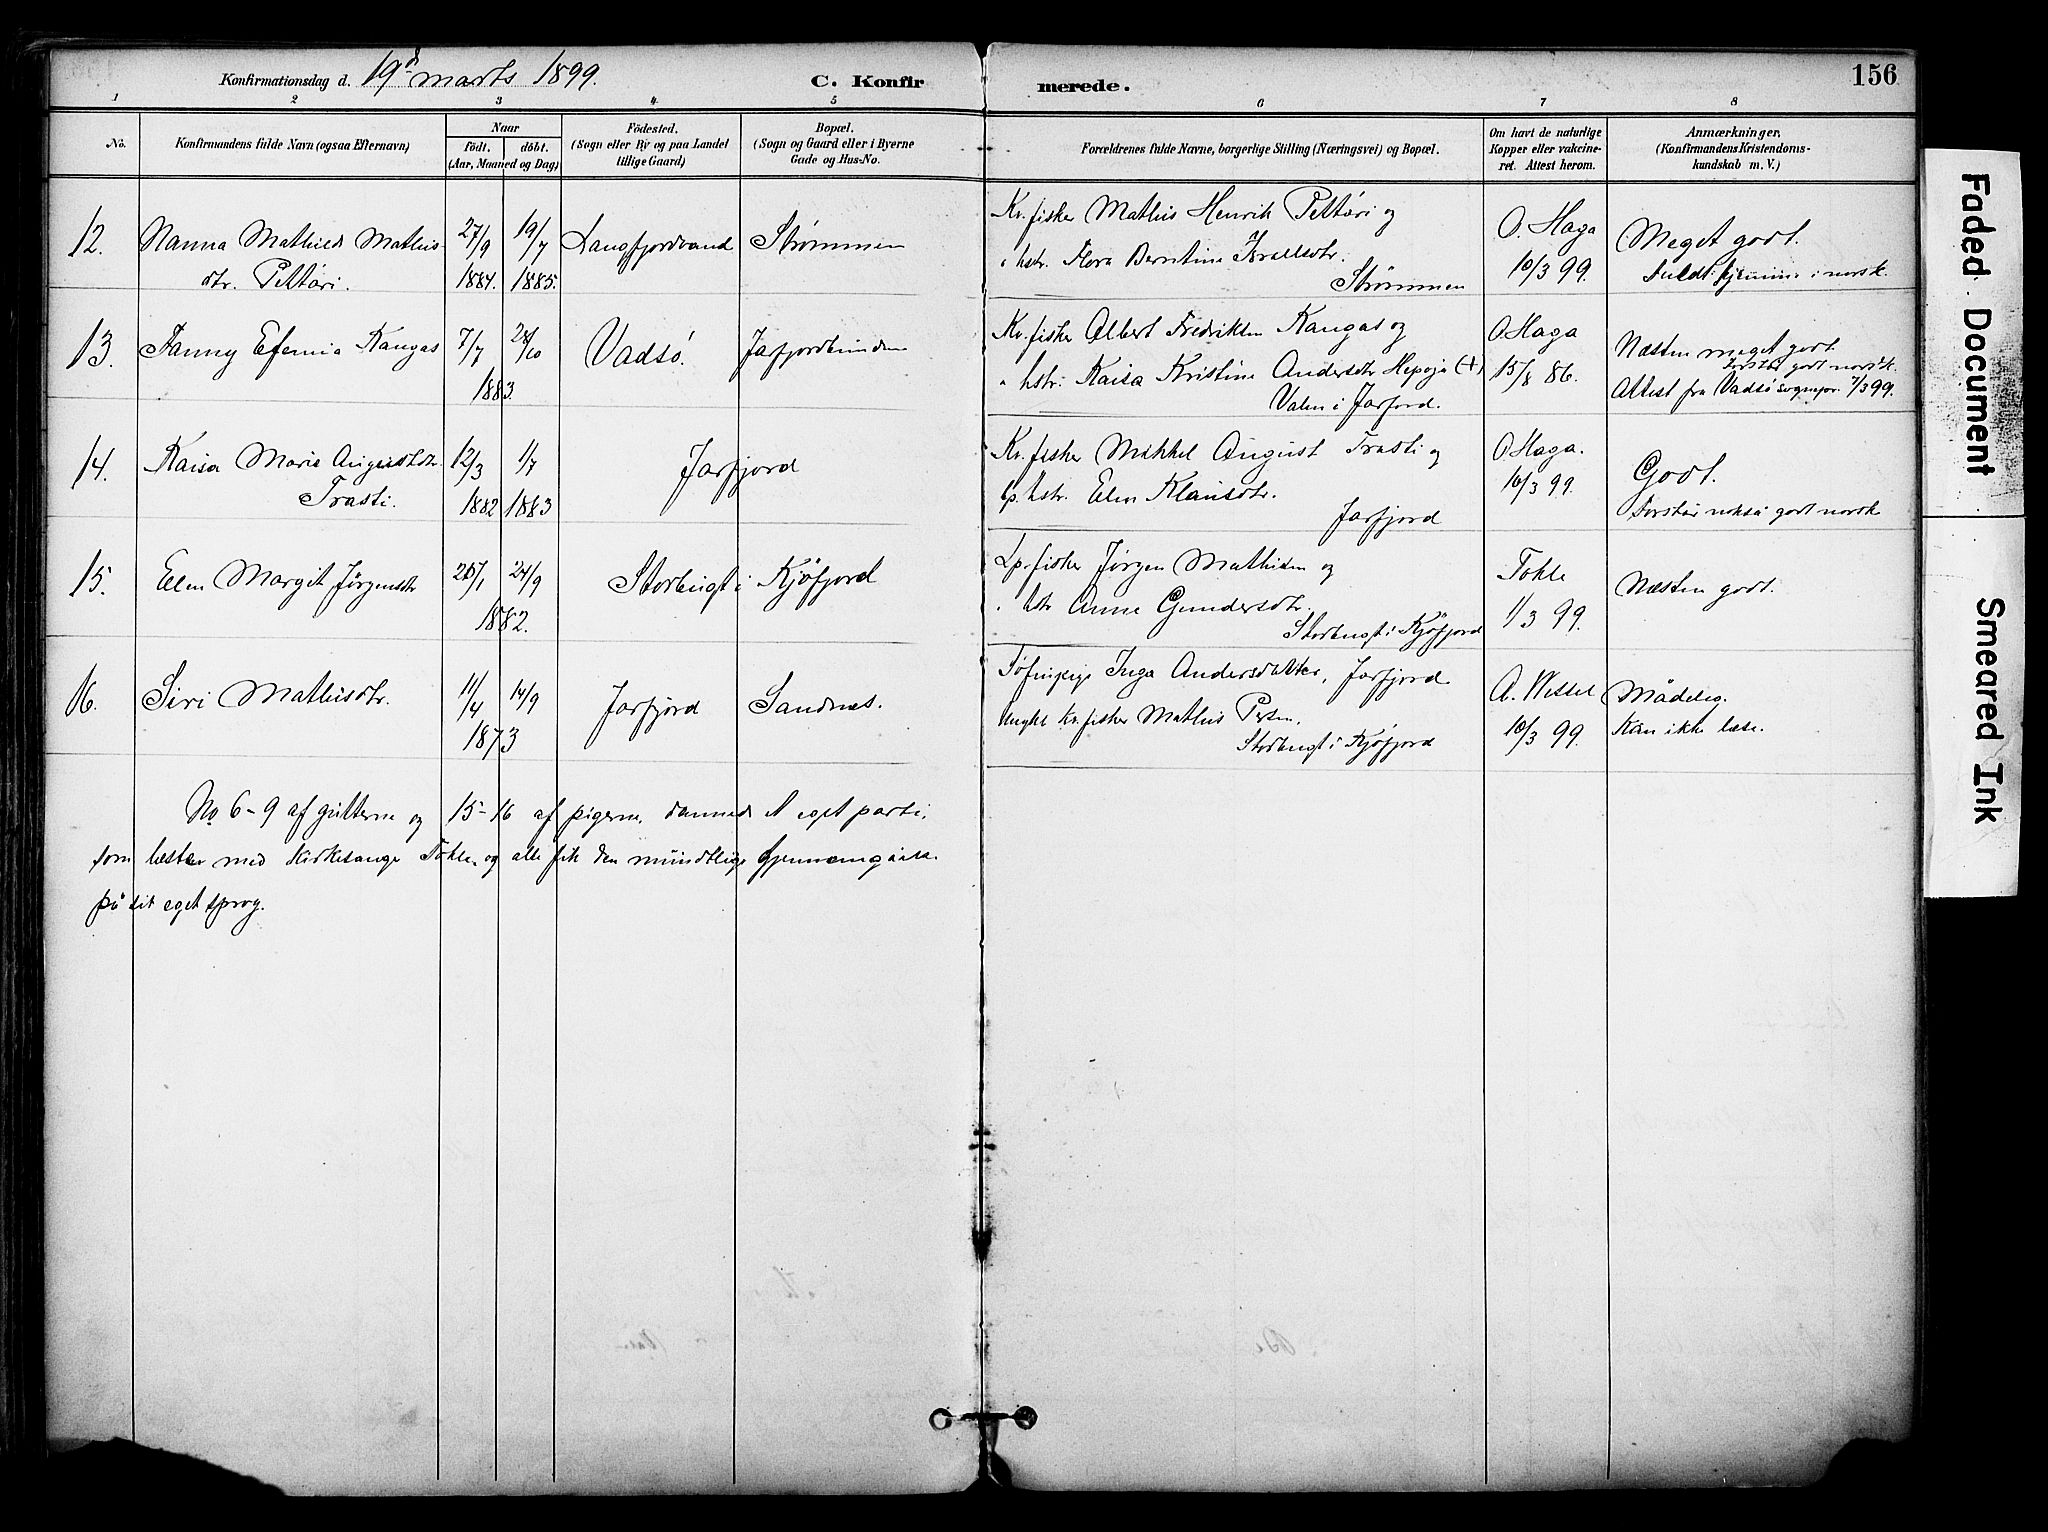 Konfirmationsdag d. 19d marts 1899. C. Konfirmerede. 156
1 2 3 4 5 6 7 8
No. Konfirmandens fulde Navn (ogsaa Efternavn) Naar födt. döbt. (Aar, Maaned og Dag) Födested. (Sogn eller By og paa Landet tillige Gaard) Bopæl. (Sogn og Gaard eller i Byerne Gade og Hus-No. Forældrenes fulde Navne, borgerlige Stilling (Næringsvei) og Bopæl. Om havt de naturlige Kopper eller vakcineret. Attest herom. Anmærkninger. (Konfirmandens Kristendomskundskab m. V.)
12. Nanna Mathilde Mathisdtr. Pettäri. 27/9 1884. 19/7 1885. Langfjordvand Strømmen
Kv. fisker Mathis Henrik Pettäri og
hstr. Flora Berntine Israelsdtr.
Strømmen
O. Haga 10/3 99.
Meget godt.
Fuldt hjemme i norsk.
13. Fanny Efemia Kangas 7/7 28/10 1883. Vadsö. Jarfjordbunden
Kv. fisker Albert Fredriksen Kangas og
" hstr. Kaisa Kristine Andersdtr Hepoja (+)
Valen i Jarfjord.
O. Haga 15/8 86.
Næsten meget godt.
Forstår godt norsk.
Attest fra Vadsö sognepr. 7/3 99.
14. Kaisa Marie Augustdtr. Trasti. 12/3 1882 1/7 1883 Jarfjord
Kv. fisker Mikkel August Trasti og
Lp. hstr. Elen Klausdtr.
Jarfjord
O. Haga. 10/3 99.
Godt.
Forstår nokså godt norsk
15. Elen Margit Jörgensdtr 20/1 24/9 1882. Storbugt i Kjöfjord
Lp. fisker Jörgen Mathisen og
" hstr Anne Gundersdtr.
Storbugt i Kjöfjord
Tokle 1/3 99.
Næsten godt.
16. Siri Mathisdtr. 11/4 14/9 1873 Jarfjord Sandnes.
Inga Andersdatter, Jarfjord
Ungkl Kv. fisker Mathis Persen,
Storbugt i Kjöfjord
A. Wessel 10/3 99.
Mådelig.
Kan ikke læse.
No 6-9 af gutterne og 15-16 af pigerne dannede et eget parti,
som læste med kirkesanger Tokle, og alle fik den mündtlige gjennemgåelse
på sit eget sprog.
Faded Document
Smeared Ink